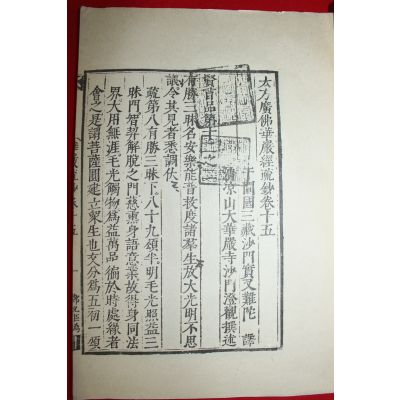 大方廣佛華嚴經疏鈔卷十五
于闐國三藏沙門實叉難陀 譯
清涼山大華嚴寺沙門澄觀撰述
賢首品第十二之
有勝三昧名安樂能普救度諸羣生放大光明不思
議令其見者悉調伏
疏第八有勝三昧下八十九頌半明毛光照益三
昧門智契解脫之門慈熏身語意業故得身同法
界大用無涯毛光觸物為益萬品徧於時處緣者
會之是謂菩薩圓建立衆生也文分為五初一頌